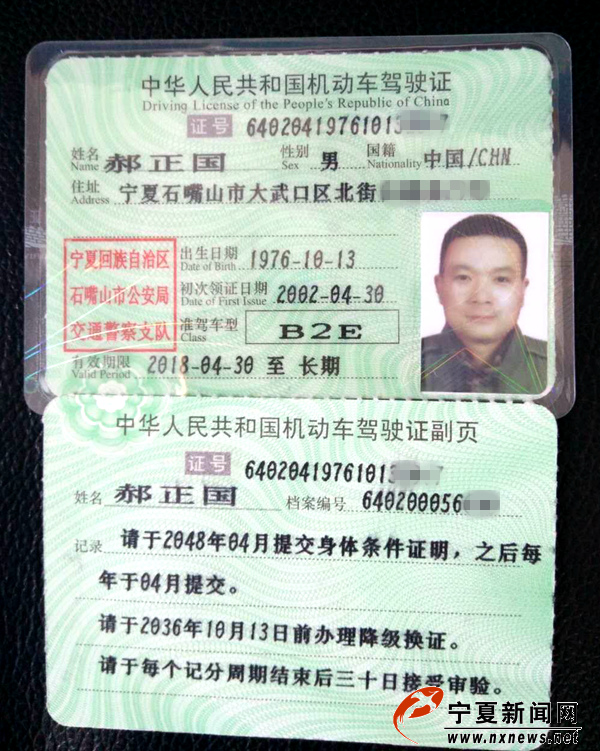 中华人民共和国机动车驾驶证
Driving License of the People's Republic of China
证号 64020419761013 7
姓名 Name 郝正国 性别 Sex 男 国籍 Nationality 中国/CHN
住址 Address 宁夏石嘴山市大武口区北街
宁夏回族自治区
石嘴山市公安局
交通警察支队
出生日期 Date of Birth 1976-10-13
初次领证日期 Date of First Issue 2002-04-30
准驾车型 Class B2E
有效期限 Valid Period 2018-04-30 至 长期
中华人民共和国机动车驾驶证副页
证号 64020419761013
姓名 郝正国 档案编号 640200056
记录 请于2048年04月提交身体条件证明，之后每
年于04月提交。
请于2036年10月13日前办理降级换证。
请于每个记分周期结束后三十日接受审验。
宁夏新闻网
www.nxnews.net